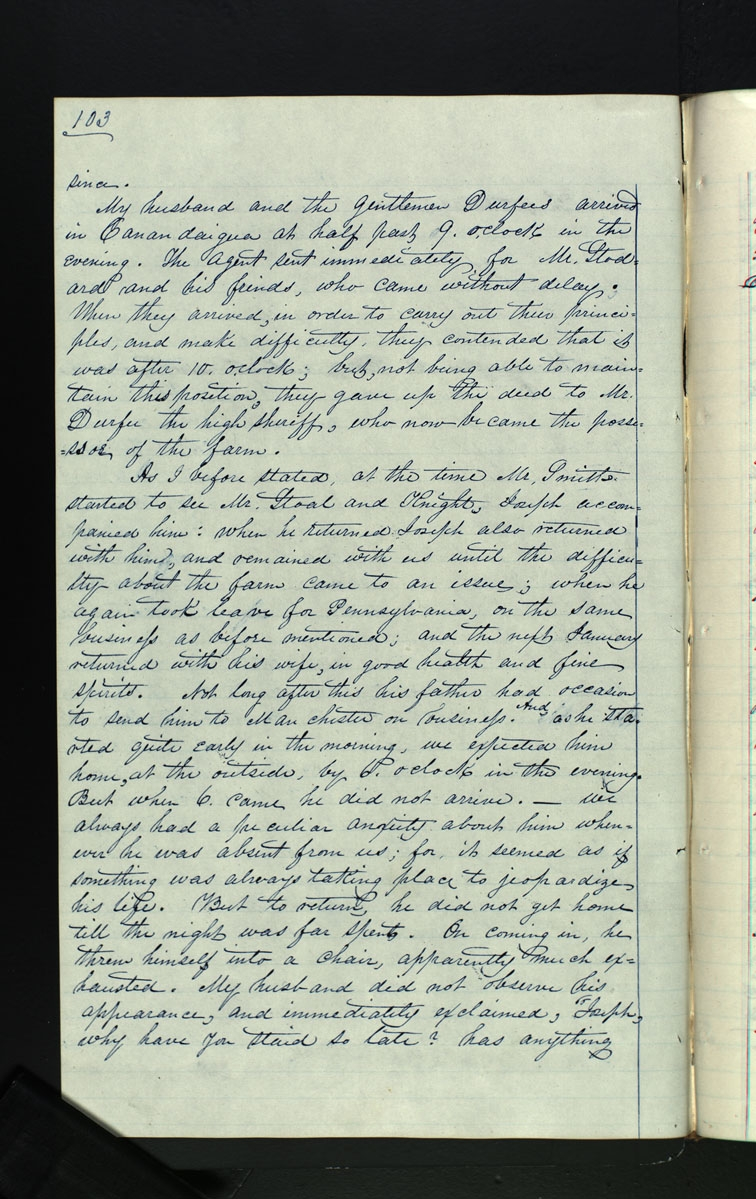 103
since.
My husband and the Gentlemen Durfees arrived
in Canandaigua at half past 9. o'clock in the
evening. The Agent sent immediately for Mr. Stod-
ard and his friends, who came without delay;
When they arrived, in order to carry out their princi-
ples, and make difficulty, they contended that it
was after 10. o,clock; but, not being able to main-
tain this position, they gave up the deed to Mr.
Durfee the high sheriff, who now became the posse-
=ssor of the farm.
As I before stated, at the time Mr. Smith
started to see Mr. Stoal and Knight, Joseph accom-
panied him: when he returned Joseph also returned
with him, and remained with us until the difficu-
lty about the farm came to an issue; when he
again took leave for Pennsylvania, on the same
business as before mentioned; and the next January
returned with his wife, in good health and fine
spirits. Not long after this his father had occasion
to send him to Manchester on business. And, as he sta-
rted quite early in the morning, we expected him
home, at the outside, by 6. o'clock in the evening.
But when 6. came he did not arrive. — we
always had a peculiar anxiety about him when-
ever he was absent from us; for, it seemed as if
something was always taking place to jeopardize
his life. But to return, he did not get home
till the night was far spent. On coming in, he
threw himself into a chair, apparently much ex-
hausted. My husband did not observe his
appearance, and immediately exclaimed, "Joseph,
why have you staid so late? has anything